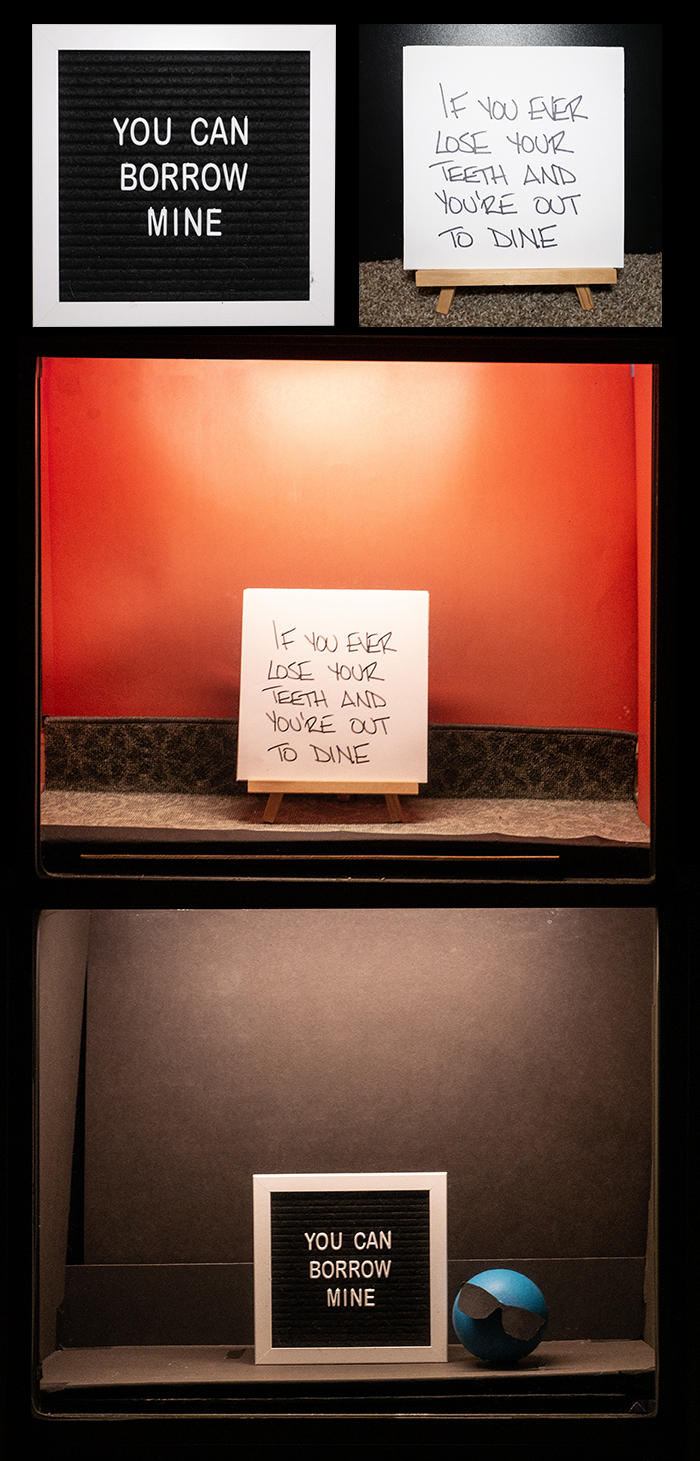 YOU CAN
BORROW
MINE
IF YOU EVER
LOSE YOUR
TEETH AND
YOU'RE OUT
TO DINE
IF YOU EVER
LOSE YOUR
TEETH AND
YOU'RE OUT
TO DINE
YOU CAN
BORROW
MINE